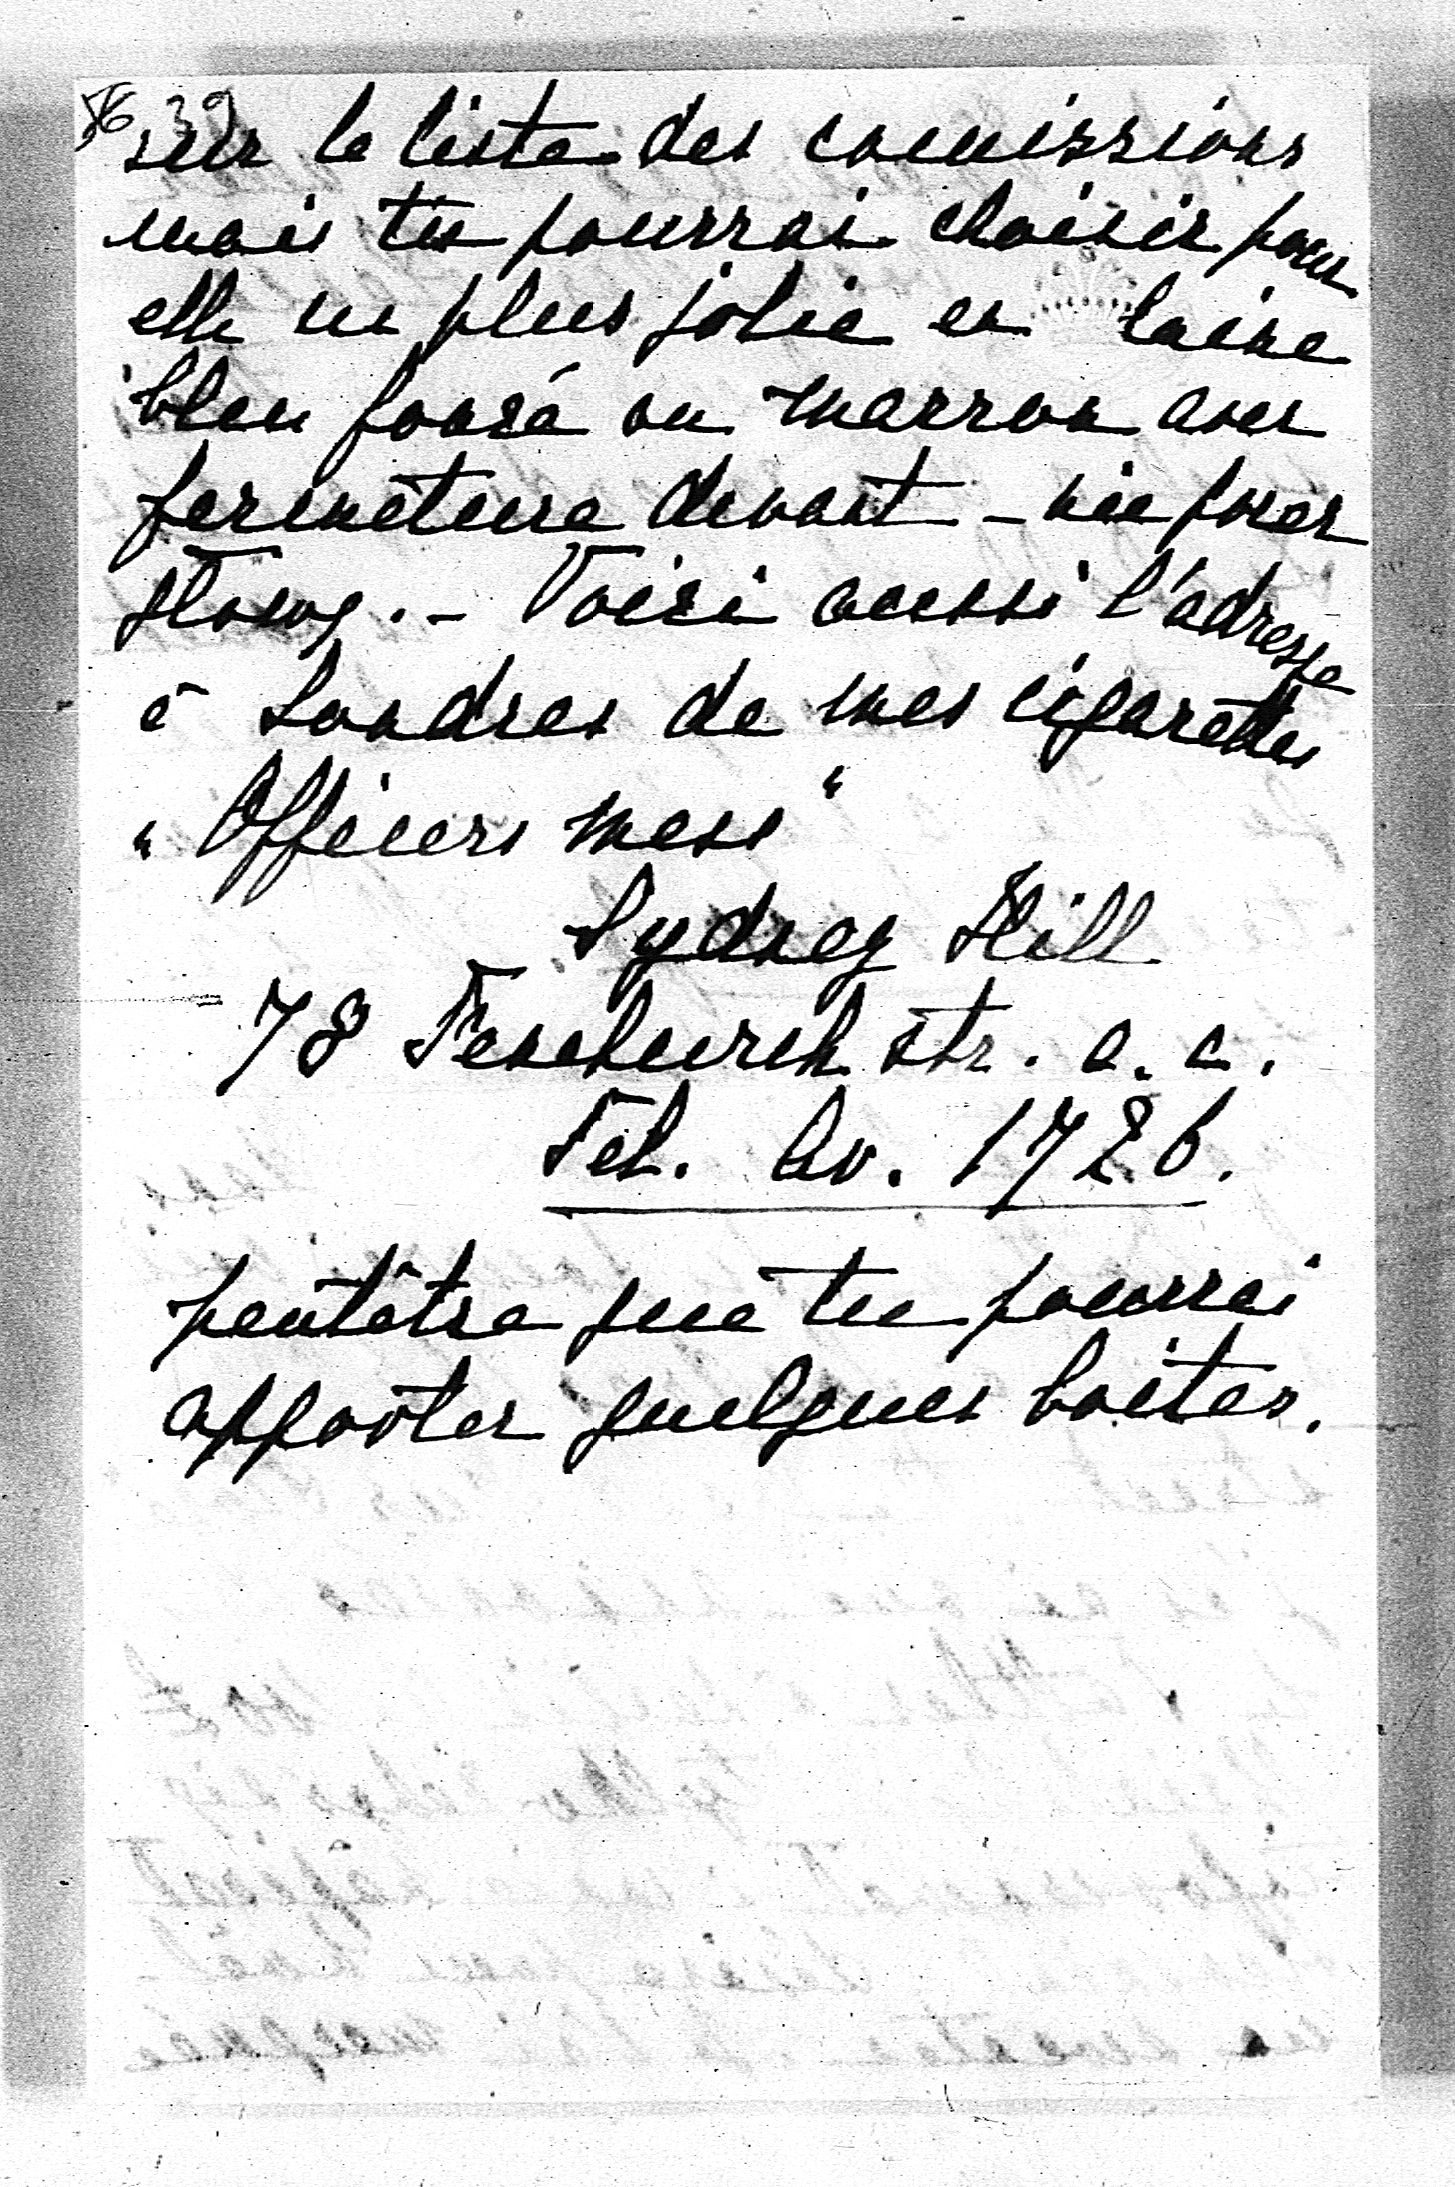 56 39
sur la liste des comissions
mais tu pourrai choisir pour
elle un plus jolie en laine
bleu foncé ou marron avec
fermeture devant
Voici aussi l'adresse
à Londres de mes cigarettes
"Officers mess"
Sydney Hill
78 Fenchurch str. e.c.
Tel. Av. 1726.
peutêtre que tu pourrai
apporter quelques boites.